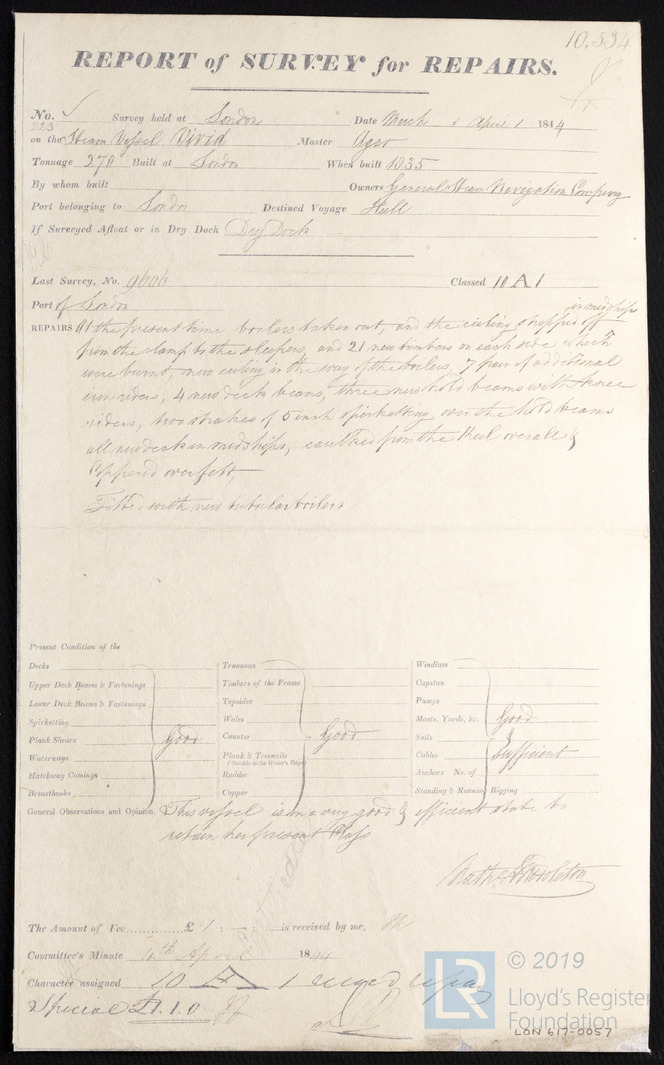 10,534
REPORT of SURVEY for REPAIRS.
No. 323 Survey held at London Date March & April 1 1844
on the Steam Vessel Vivid Master Agar
Tonnage 270 Built at London When built 1835
By whom built Owners General Steam Navigation Company
Port belonging to London Destined Voyage Hull
If Surveyed Afloat or in Dry Dock Dry Dock
Last Survey, No. 9606 Classed 10 A 1
Port of London
in midships
REPAIRS At the present time boilers taken out, and the ceiling stripped off
from the clamp to the sleepers, and 21 new timbers on each side which
were burnt, new ceiling in the way of the boilers, 7 pair of additional
iron riders, 4 new deck beams, three new hold beams with knee
riders, two strakes of 5 inch spirketting, over the hold beams
all new deck in midships, caulked from the Keel over all &
Coppered over felt,
Fitted with new tubular boilers
Present Condition of the
Decks Transoms Windlass
Upper Deck Beams & Fastenings Timbers of the Frame Capstan
Lower Deck Beams & Fastenings Topsides Pumps
Spirketting Wales Masts, Yards, &c. Good
Plank Shears Good Counter Good Sails &
Waterways Plank & Treenails (Outside to the Water's Edge) Cables Sufficient
Hatchway Comings Rudder Anchors No. of
Breasthooks Copper Standing & Running Rigging
General Observations and Opinion. This vessel is in a very good & efficient state to
retain her present Class
The Amount of Fee £ 1 : - : is received by me,
Committee's Minute 4th April 1844
Character assigned 10 A 1
& Special £1.1.0
LR © 2019
Lloyd's Register
Foundation
LON 617-0057